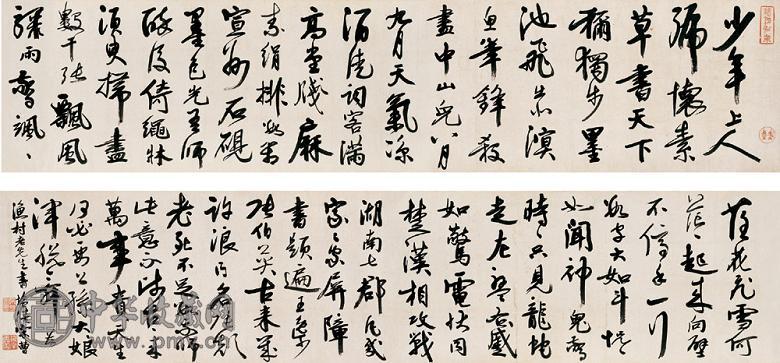 少年上人
號懷素
草書天下
稱獨步墨
池飛出溟
魚筆鋒殺
盡中山兔八月
九月天氣涼
酒徒詞客滿
高堂牋麻
素絹排數廂
宣州石硯
墨色光吾師
醉後倚繩牀
須臾掃盡
數千張飄風
驟雨驚颯、
落花飛雪何
茫、起來向壁
不停手一行
數字大如斗怳
如聞神鬼驚
時、只見龍蛇
走左盤右蹙
如驚電狀同
楚漢相攻戰
湖南七郡凡幾
家、屏障
書題遍王逸少
張伯英古來幾
許浪得名張顛
老死不足數我師
此意不師古古來
萬事貴天生
何必要公孫大娘
渾脫舞
漁村老先生書
中华收藏网
www.pmsc.com